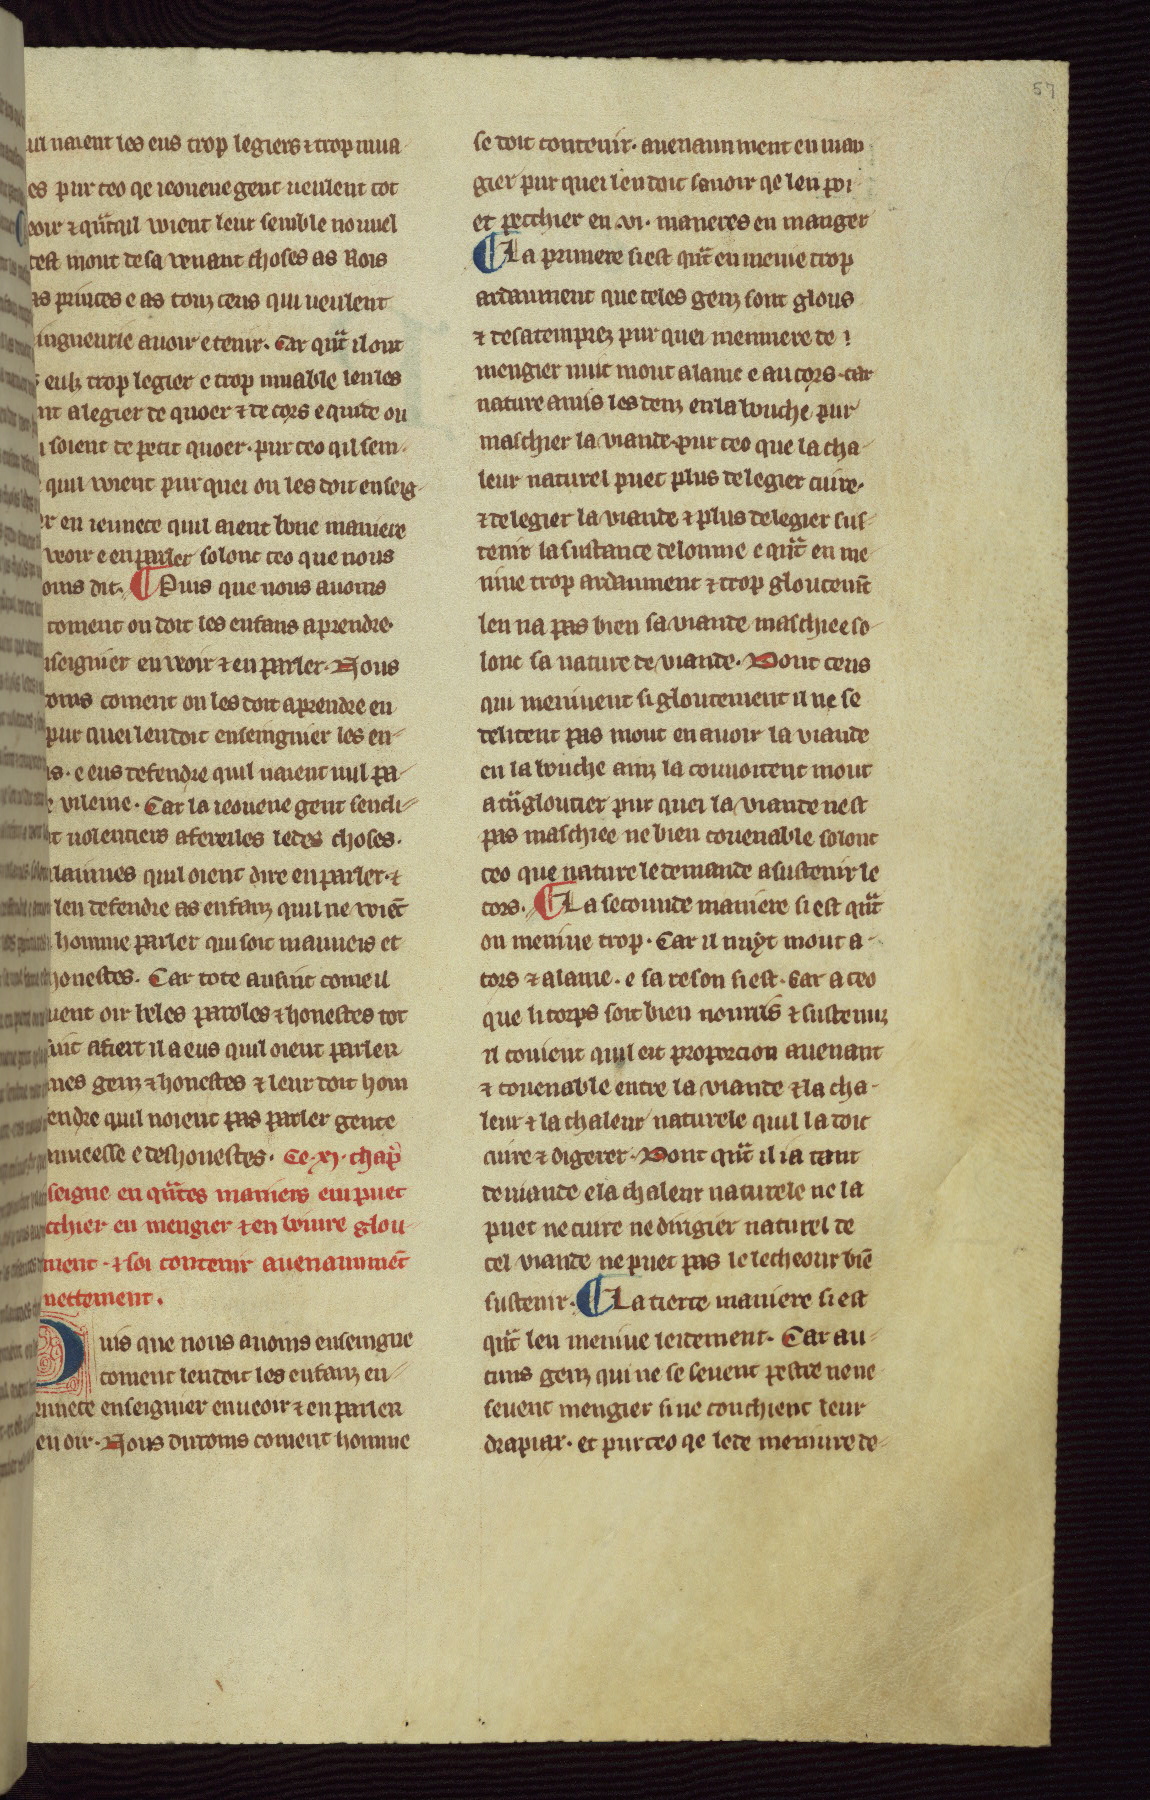 57
naient les eus trop legiers ⁊ trop mua-
es pur ceo qe ieouene gent ueulent tot
eoir ⁊ qu̾t quil voient leur semble nouuel
cest mout desauenant choses as Rois
as princes e as touz ceus qui ueulent
ingneurie auoir e tenir. Car qu̾t il ont
eulz trop legier e trop muable len les
nt a legier de quoer ⁊ de cors e quide on
soient de petit quoer. pur ceo qil sem-
quil voient pur quei on les doit enseig-
er en iennece quil aient bone maniere
veoir e en parler solonc ceo que nous
oms dit. ¶ Puis que nous auoms
coment on doit les enfans aprendre.
nseignier en veoir ⁊ en parler. Nous
oms coment on les doit aprendre en
pur quei len doit enseingnier les en-
s. e eus defendre quil naient nul pa-
e vileine. Car la ieouene gent sencli-
t uolentiers a fere les ledes choses.
lainnes quil oient dire en parler. ⁊
len defendre as enfanz quil ne voiēt
homme parler qui soit mauueis et
honestes. Car tote ausint come il
uent oir beles paroles ⁊ honestes tot
int afiert il a eus quil oient parler
nes genz ⁊ honestes ⁊ leur doit hom
endre quil noient pas parler gente
auueesse e deshonestes. Ce .xj. chap̄
seigne en qu̾tes maniers em puet
cchier en mengier ⁊ en boiure glou-
ment. ⁊ soi contenir auenammēt
nettement.
Puis que nous auoms enseingne
coment len doit les enfanz en-
ennece enseignier en ueoir ⁊ en parler
en oir. Nous diroms coment homme
se doit contenir. auenaument en man
gier pur quei len doit sauoir qe len poi-
et pecchier en .vi. maneres en manger
¶ La primere si est qu̾t en meniue trop
ardaument que celes genz sont glous
⁊ desatemprez pur quei menniere de
mengier nuit mout a lame e au cors. car
nature a mis les denz en la bouche pur
maschier la viande. pur ceo que la cha-
leur naturel puet plus de legier cuire.
⁊ de legier la viande ⁊ plus de legier sus-
tenir la sustance de lomme e qu̾t en me-
niue trop ardaument ⁊ trop gloutemēt
len na pas bien sa viande maschiee so-
lonc sa nature de viande. Dont ceus
qui meniuent si gloutement il ne se
delitent pas mout en auoir la viande
en la bouche ainz la couuoitent mout
a tñgloutier pur quei la viande nest
pas maschiee ne bien couenable solonc
ceo que nature le demande a sustenir le
cors. ¶ La secounde maniere si est qu̾t
on meniue trop. Car il nuyt mout a-
cors ⁊ a lame. e sa reson si est. Car a ceo
que li corps soit bien nourris ⁊ sustenuz
il couient quil eit proporcion auenant
⁊ couenable entre la viande ⁊ la cha-
leur ⁊ la chaleur naturele quil la doit
cuire ⁊ digerer. Dont qu̾t il i a tant
de viande e la chaleur naturele ne la
puet ne cuire ne dirigier naturel de
cel viande ne puet pas le lecheour biē
sustenir. ¶ La tierce maniere si est
qu̾t len meniue leidement. Car au-
cuns genz qui ne se seuent pestre ne ne
seuent mengier si ne conchient leur
drapiax. et pur ceo qe lede meniure de-